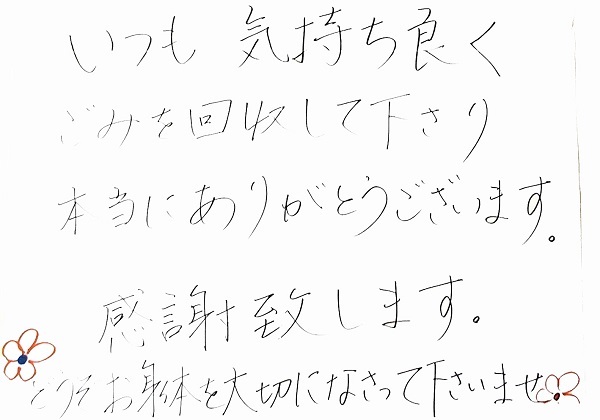 いつも 気持ち良く
ごみを回収して下さり
本当にありがとうございます。
感謝致します。
どうぞお身体を大切になさって下さいませ